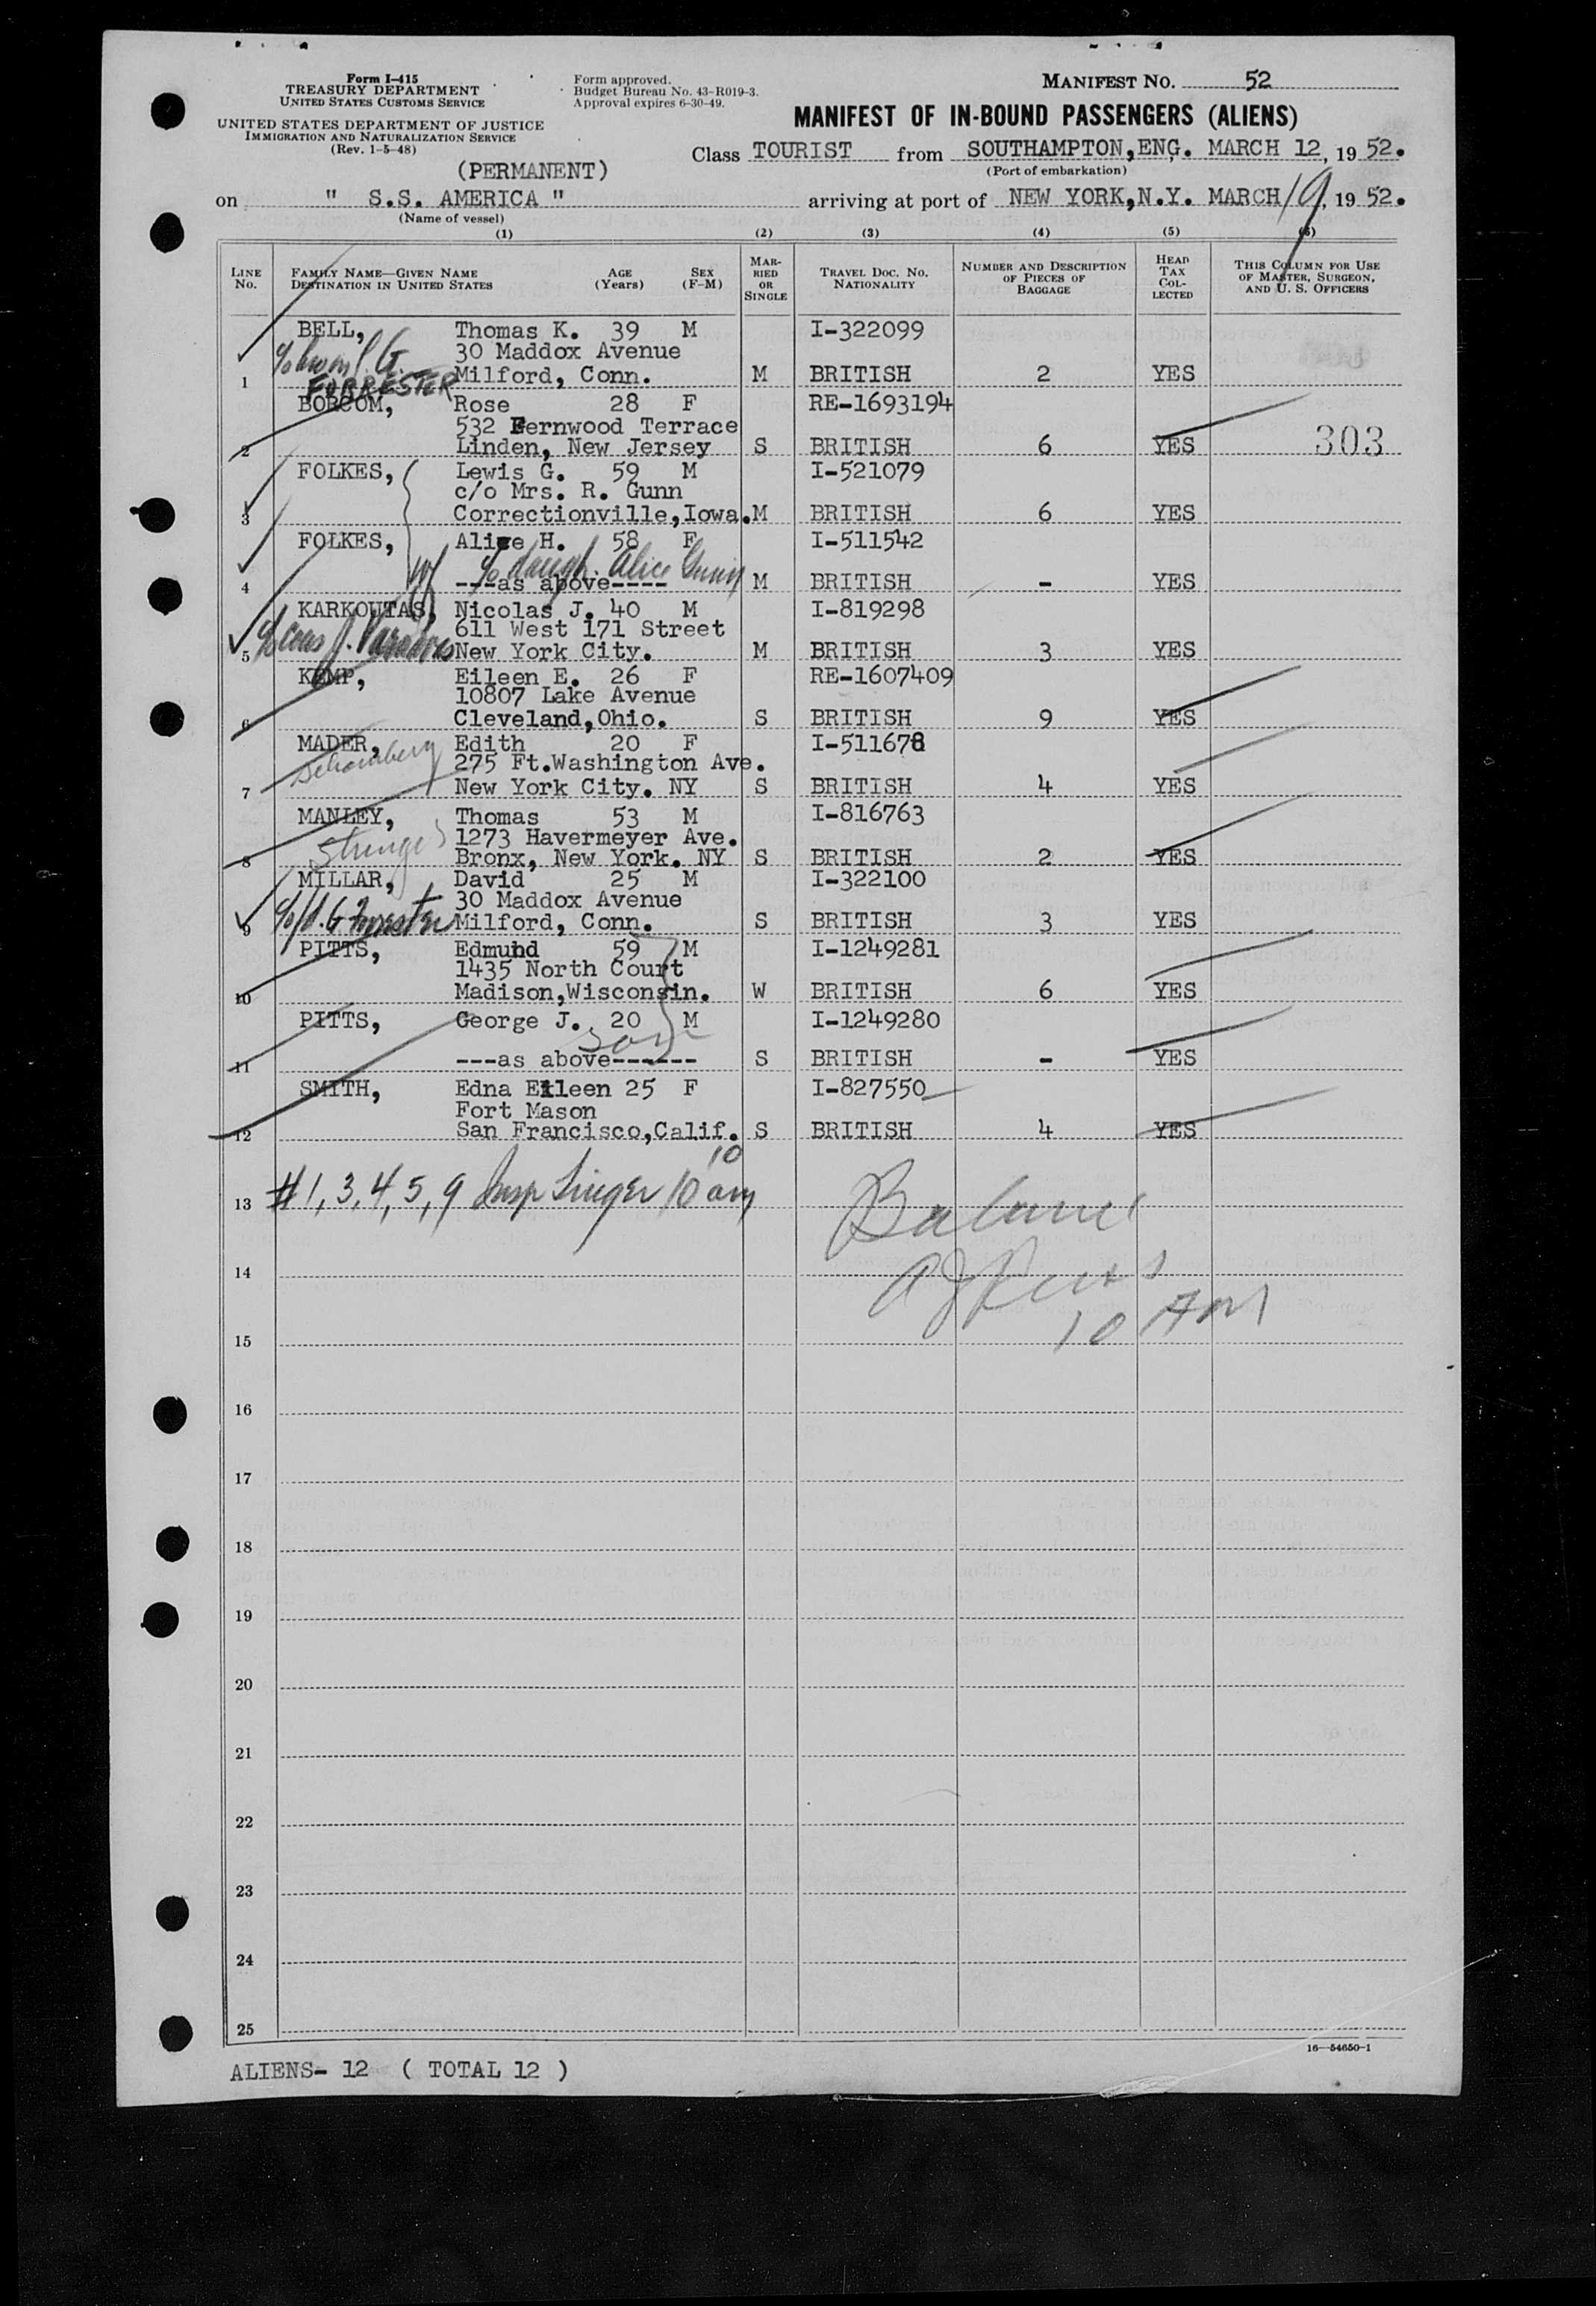 Form I-415
TREASURY DEPARTMENT
UNITED STATES CUSTOMS SERVICE
UNITED STATES DEPARTMENT OF JUSTICE
IMMIGRATION AND NATURALIZATION SERVICE
(Rev. 1-5-48)
Form approved.
Budget Bureau No. 43-R019-3.
Approval expires 6-30-49.
MANIFEST NO. 52
MANIFEST OF IN-BOUND PASSENGERS (ALIENS)
(PERMANENT)
Class TOURIST from SOUTHAMPTON,ENG. MARCH 12, 1952.
(Port of embarkation)
on " S.S. AMERICA " arriving at port of NEW YORK,N.Y. MARCH 19, 1952.
(Name of vessel)
(1) (2) (3) (4) (5) (6)
LINE No. FAMILY NAME—GIVEN NAME DESTINATION IN UNITED STATES AGE (Years) SEX (F-M) MARRIED OR SINGLE TRAVEL DOC. NO. NATIONALITY NUMBER AND DESCRIPTION OF PIECES OF BAGGAGE HEAD TAX COLLECTED THIS COLUMN FOR USE OF MASTER, SURGEON, AND U. S. OFFICERS
BELL, Thomas K. 39 M I-322099
30 Maddox Avenue
1 Milford, Conn. M BRITISH 2 YES
FORRESTER
BORCOM, Rose 28 F RE-1693194
532 Fernwood Terrace
2 Linden, New Jersey S BRITISH 6 YES 303
FOLKES, Lewis G. 59 M I-521079
c/o Mrs. R. Gunn
3 Correctionville,Iowa. M BRITISH 6 YES
FOLKES, Alice H. 58 F I-511542
wf c/o daugh. Alice Gunn
4 ---as above---- M BRITISH - YES
KARKOUTAS, Nicolas J. 40 M I-819298
611 West 171 Street
5 c/o cous J. New York City. M BRITISH 3 YES
KEMP, Eileen E. 26 F RE-1607409
10807 Lake Avenue
6 Cleveland,Ohio. S BRITISH 9 YES
MADER, Edith 20 F I-511678
275 Ft.Washington Ave.
7 New York City. NY S BRITISH 4 YES
MANLEY, Thomas 53 M I-816763
1273 Havermeyer Ave.
8 Bronx, New York. NY S BRITISH 2 YES
MILLAR, David 25 M I-322100
30 Maddox Avenue
9 Milford, Conn. S BRITISH 3 YES
PITTS, Edmund 59 M I-1249281
1435 North Court
10 Madison,Wisconsin. W BRITISH 6 YES
PITTS, George J. 20 M I-1249280
son
11 ---as above------ S BRITISH - YES
SMITH, Edna Eileen 25 F I-827550
Fort Mason
12 San Francisco,Calif. S BRITISH 4 YES
10
13 #1,3,4,5,9 Insp Singer 10 am
Balance
14
10 AM
15
16
17
18
19
20
21
22
23
24
25
16—54650-1
ALIENS- 12 ( TOTAL 12 )